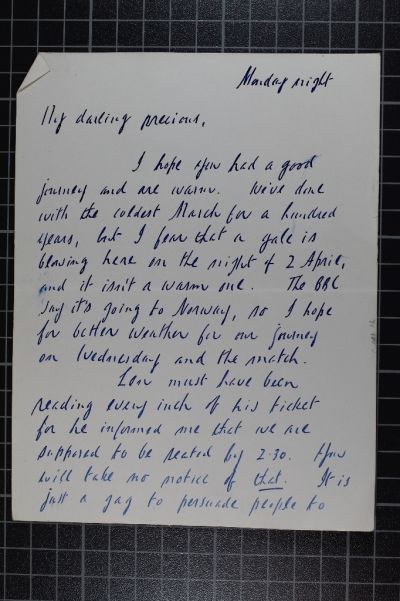 Monday night
My darling precious,
I hope you had a good
journey and are warm. We've done
with the coldest March for a hundred
years, but I fear that a gale is
blowing here on the night of 2 April,
and it isn't a warm one. The BBC
say it's going to Norway, so I hope
for better weather for our journey
on Wednesday and the match.
Len must have been
reading every inch of his ticket
for he informed me that we are
supposed to be seated by 2.30. You
will take no notice of that. It is
just a gag to persuade people to